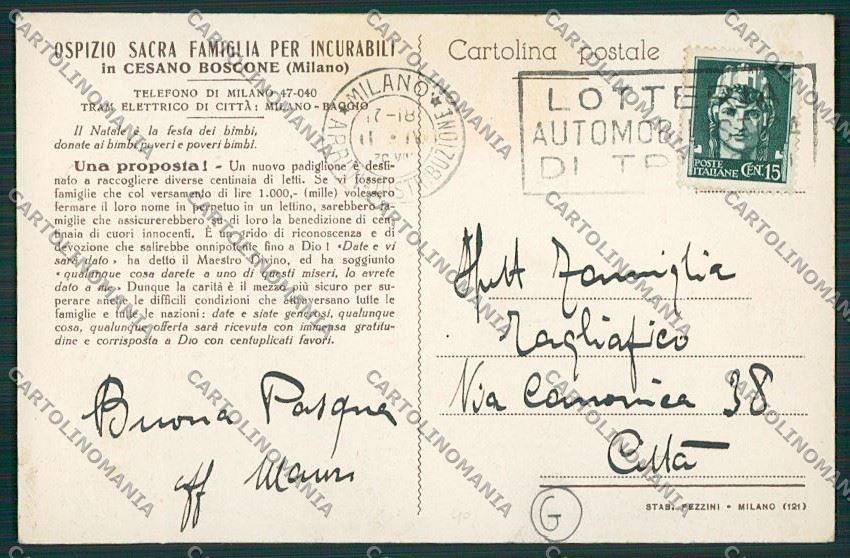 OSPIZIO SACRA FAMIGLIA PER INCURABILI
in CESANO BOSCONE (Milano)
TELEFONO DI MILANO 47-040
TRAM ELETTRICO DI CITTÀ: MILANO - BAGGIO
Il Natale è la festa dei bimbi,
donate ai bimbi poveri e poveri bimbi.
Una proposta! - Un nuovo padiglione è desti-
nato a raccogliere diverse centinaia di letti. Se vi fossero
famiglie che col versamento di lire 1.000,- (mille) volessero
fermare il loro nome in perpetuo in un lettino, sarebbero fa-
miglie che assicurerebbero su di loro la benedizione di cen-
tinaia di cuori innocenti. È un grido di riconoscenza e di
devozione che salirebbe onnipotente fino a Dio! «Date e vi
sarà dato» ha detto il Maestro Divino, ed ha soggiunto
«qualunque cosa darete a uno di questi miseri, lo avrete
dato a me» Dunque la carità è il mezzo più sicuro per su-
perare anche le difficili condizioni che attraversano tutte le
famiglie e tutte le nazioni: date e siate generosi, qualunque
cosa, qualunque offerta sarà ricevuta con immensa gratitu-
dine e corrisposta a Dio con centuplicati favori.
Buona Pasqua
aff Mauri
Cartolina postale
MILANO
17-18
LOTTERIA
AUTOMOB
DI TR
POSTE
ITALIANE CENT. 15
Famiglia
Tagliafico
Via Canonica 38
Città
G
STAB. PEZZINI - MILANO (121)
CARTOLINOMANIA